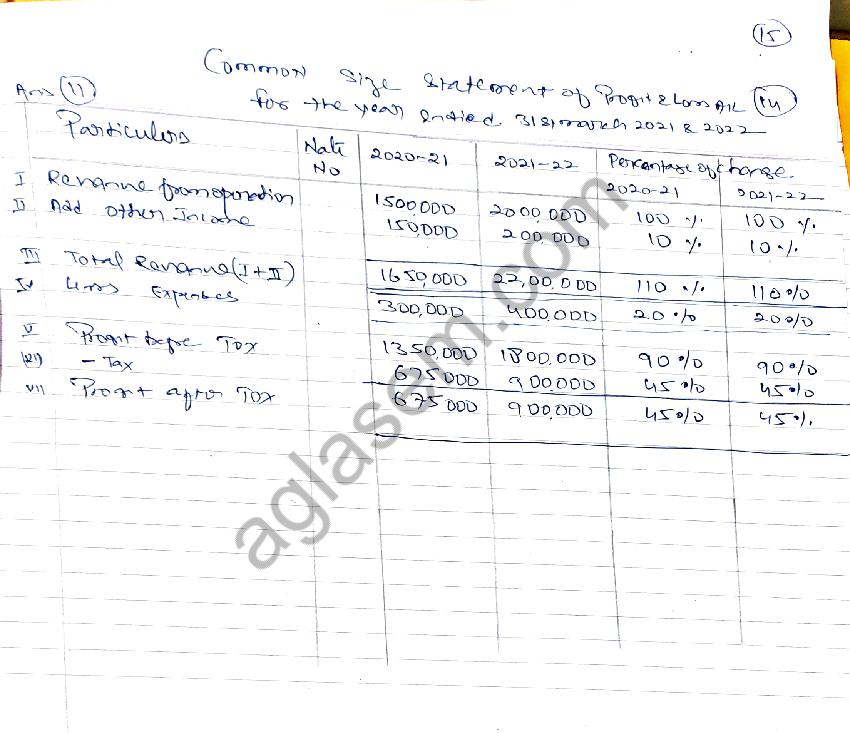 15
Common Size Statement of Profit & Loss A/c
14
Ans 11
for the year Ended 31st march 2021 & 2022
Particulers
Note No
2020-21
2021-22
Percentage of change.
2020-21
2021-22
I Revenue from operation 1500,000 2000,000 100 % 100 %
II Add Other Income 150,000 200,000 10 % 10 %
III Total Revenue (I+II) 1650,000 22,00,000 110 % 110%
IV Less Expenses 300,000 400,000 20% 20%
V Profit before Tax 1350,000 1800,000 90% 90%
- Tax 675000 900,000 45% 45%
VII Profit after Tax 675000 900,000 45% 45%
aglasem.com